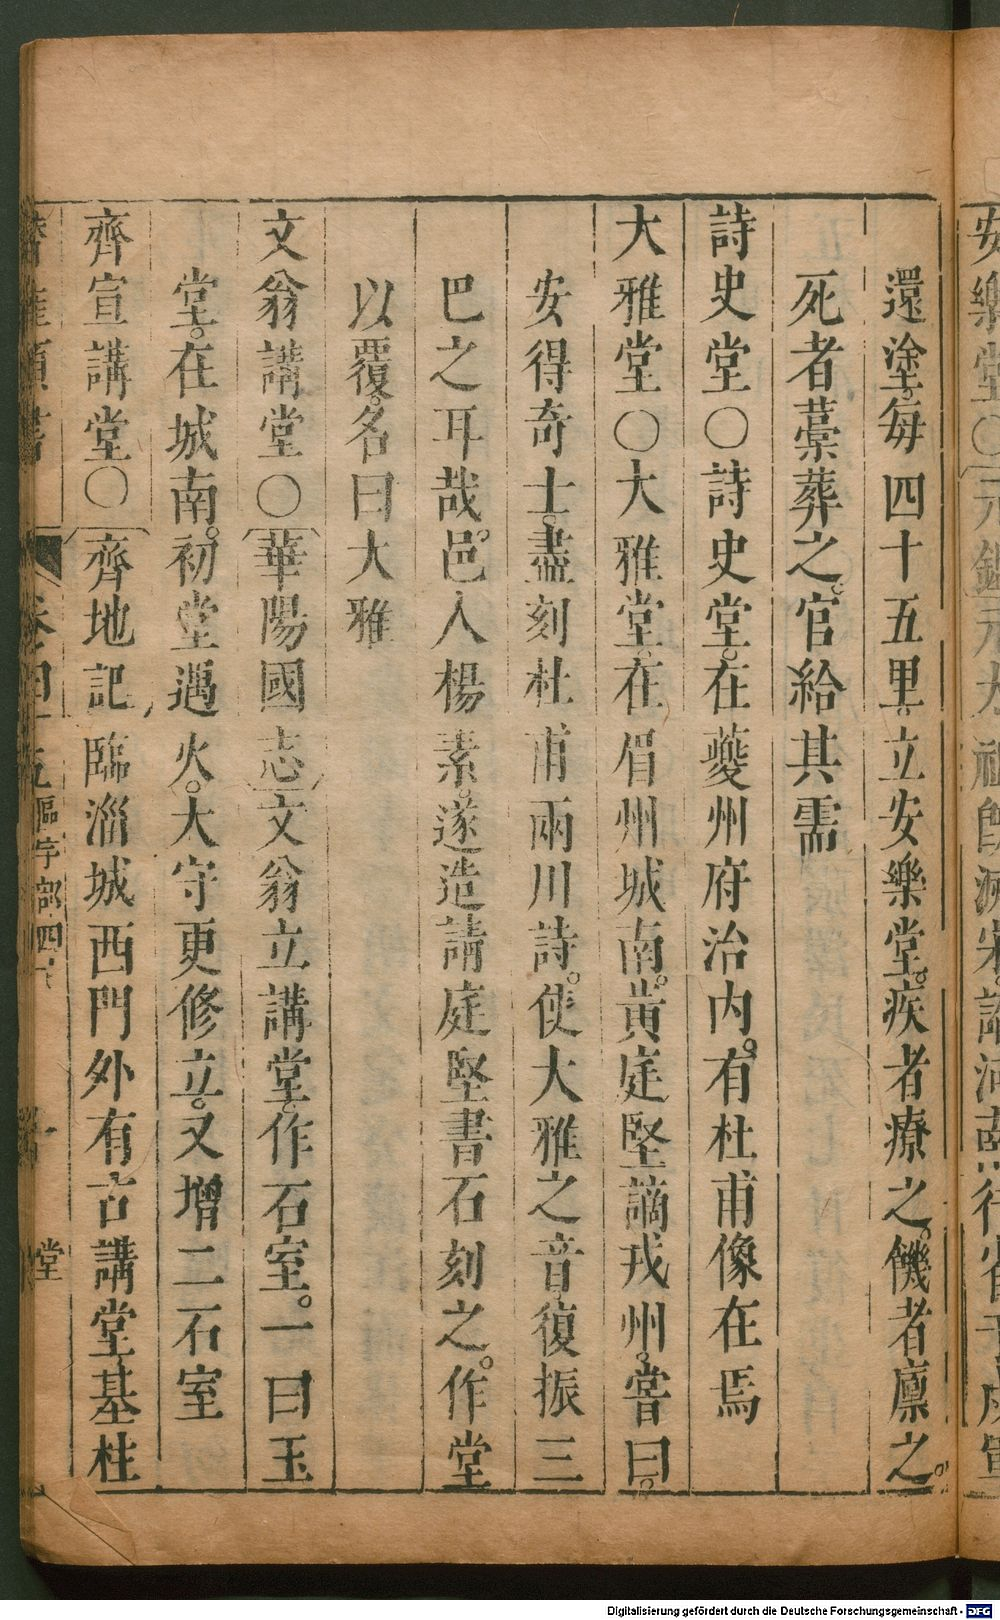 還塗。每四十五里。立安樂堂。疾者療之。饑者廩之。
死者藁葬之。官給其需
詩史堂○詩史堂。在夔州府治內。有杜甫像在焉
大雅堂○大雅堂。在眉州城南。黃庭堅謫戎州。嘗曰。
安得奇士。盡刻杜甫兩川詩。使大雅之音。復振三
巴之耳哉。邑人楊素。遂造請庭堅書石刻之。作堂
以覆。名曰大雅
文翁講堂○華陽國志文翁立講堂。作石室。一曰玉
堂。在城南。初堂遇火。太守更修立。又增二石室
齊宣講堂○齊地記臨淄城西門外有古講堂。基柱
卷四十五
部四
堂
安樂堂○元
Digitalisierung gefördert durch die Deutsche Forschungsgemeinschaft - DFG